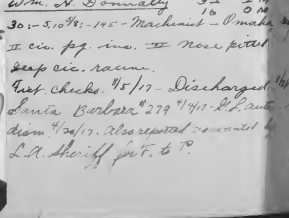 Wm. H. Donnally
30:- 5,10 5/8:- 145 - Machinist - Omaha
II cic. fg. inc. III nose pitted
deep cic. racine.
Fict. checks. 4/5/17 - Discharged
Santa Barbara # 279 4/4/17 - G.L. auto
dism 4/20/17. Also reported as wanted by
L.A. Sheriff for F. to P.